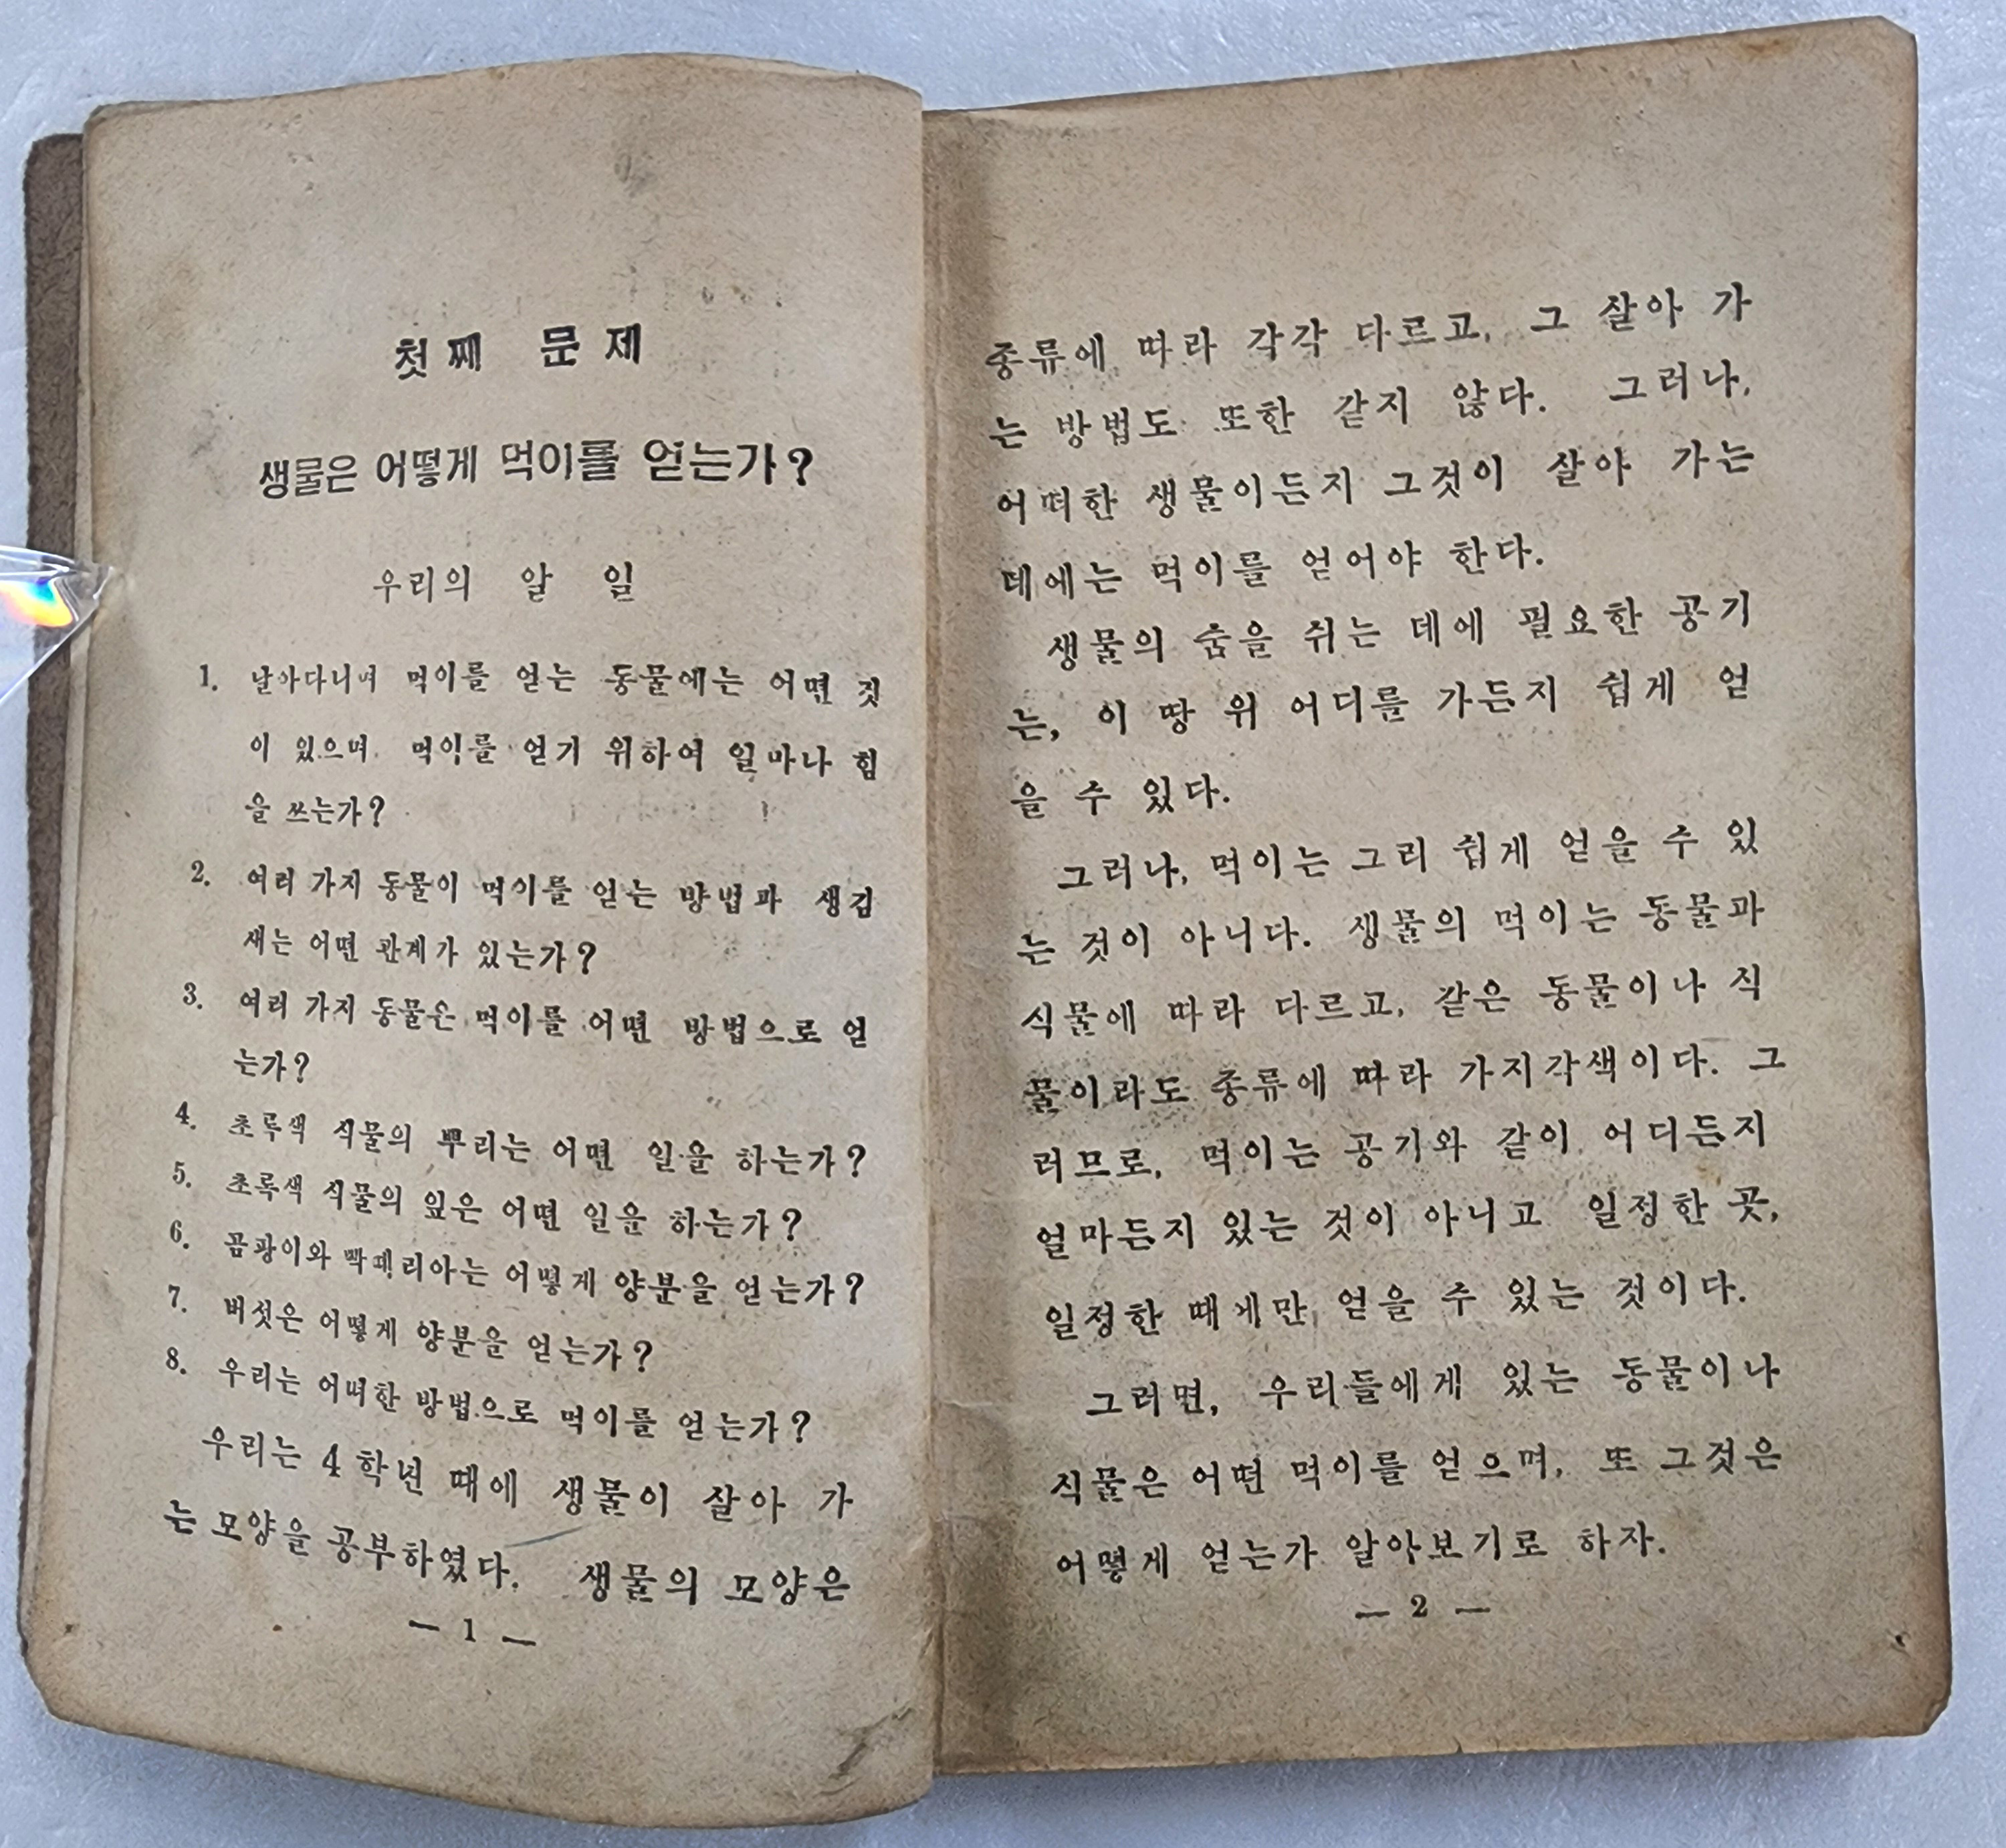 첫째 문제
생물은 어떻게 먹이를 얻는가?
우리의 알 일
1. 날아다니며 먹이를 얻는 동물에는 어떤 것
이 있으며, 먹이를 얻기 위하여 얼마나 힘
을 쓰는가?
2. 여러 가지 동물이 먹이를 얻는 방법과 생김
새는 어떤 관계가 있는가?
3. 여러 가지 동물은 먹이를 어떤 방법으로 얻
는가?
4. 초록색 식물의 뿌리는 어떤 일을 하는가?
5. 초록색 식물의 잎은 어떤 일을 하는가?
6. 곰팡이와 빡테리아는 어떻게 양분을 얻는가?
7. 버섯은 어떻게 양분을 얻는가?
8. 우리는 어떠한 방법으로 먹이를 얻는가?
우리는 4학년 때에 생물이 살아 가
는 모양을 공부하였다. 생물의 모양은
— 1 —
종류에 따라 각각 다르고, 그 살아 가
는 방법도 또한 같지 않다. 그러나,
어떠한 생물이든지 그것이 살아 가는
데에는 먹이를 얻어야 한다.
생물의 숨을 쉬는 데에 필요한 공기
는, 이 땅 위 어디를 가든지 쉽게 얻
을 수 있다.
그러나, 먹이는 그리 쉽게 얻을 수 있
는 것이 아니다. 생물의 먹이는 동물과
식물에 따라 다르고, 같은 동물이나 식
물이라도 종류에 따라 가지각색이다. 그
러므로, 먹이는 공기와 같이 어디든지
얼마든지 있는 것이 아니고 일정한 곳,
일정한 때에만 얻을 수 있는 것이다.
그러면, 우리들에게 있는 동물이나
식물은 어떤 먹이를 얻으며, 또 그것은
어떻게 얻는가 알아보기로 하자.
— 2 —